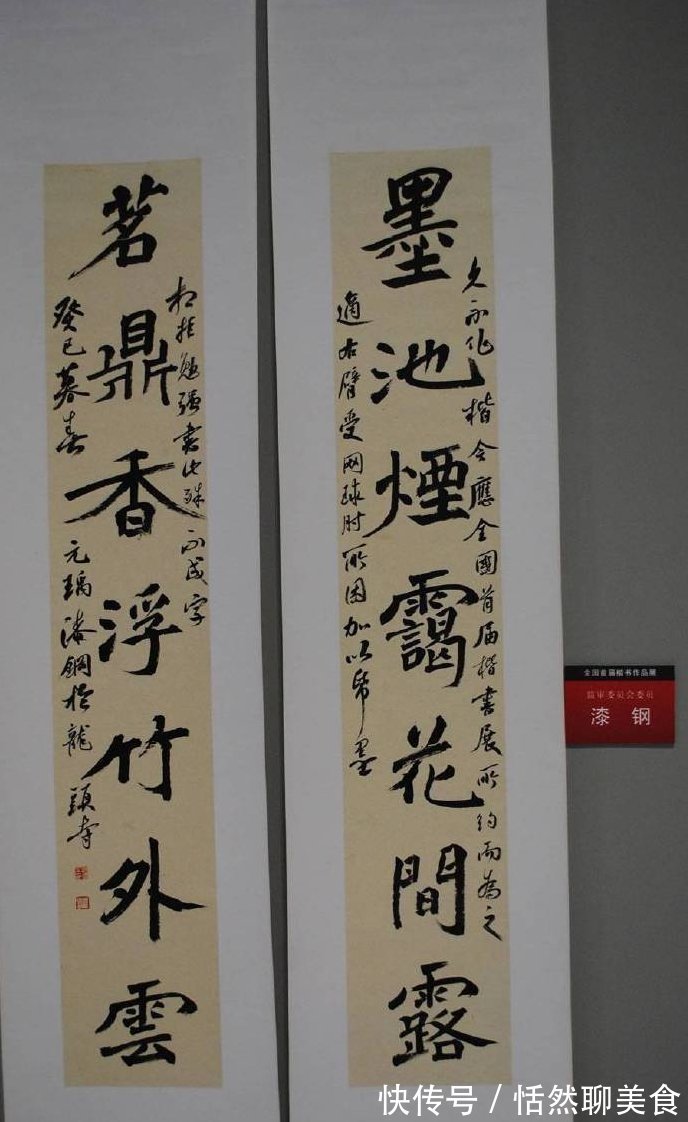 墨池煙靄花間露
久不作楷今應全國首届楷書展所約而為之
適右臂受网球肘所困加以帋墨
茗鼎香浮竹外雲
相拒勉强書此殊不成字
癸巳暮春 元瑀漆鋼於龍頭
全国首届楷书作品展
监审委员会委员
漆 钢
快传号 / 恬然聊美食